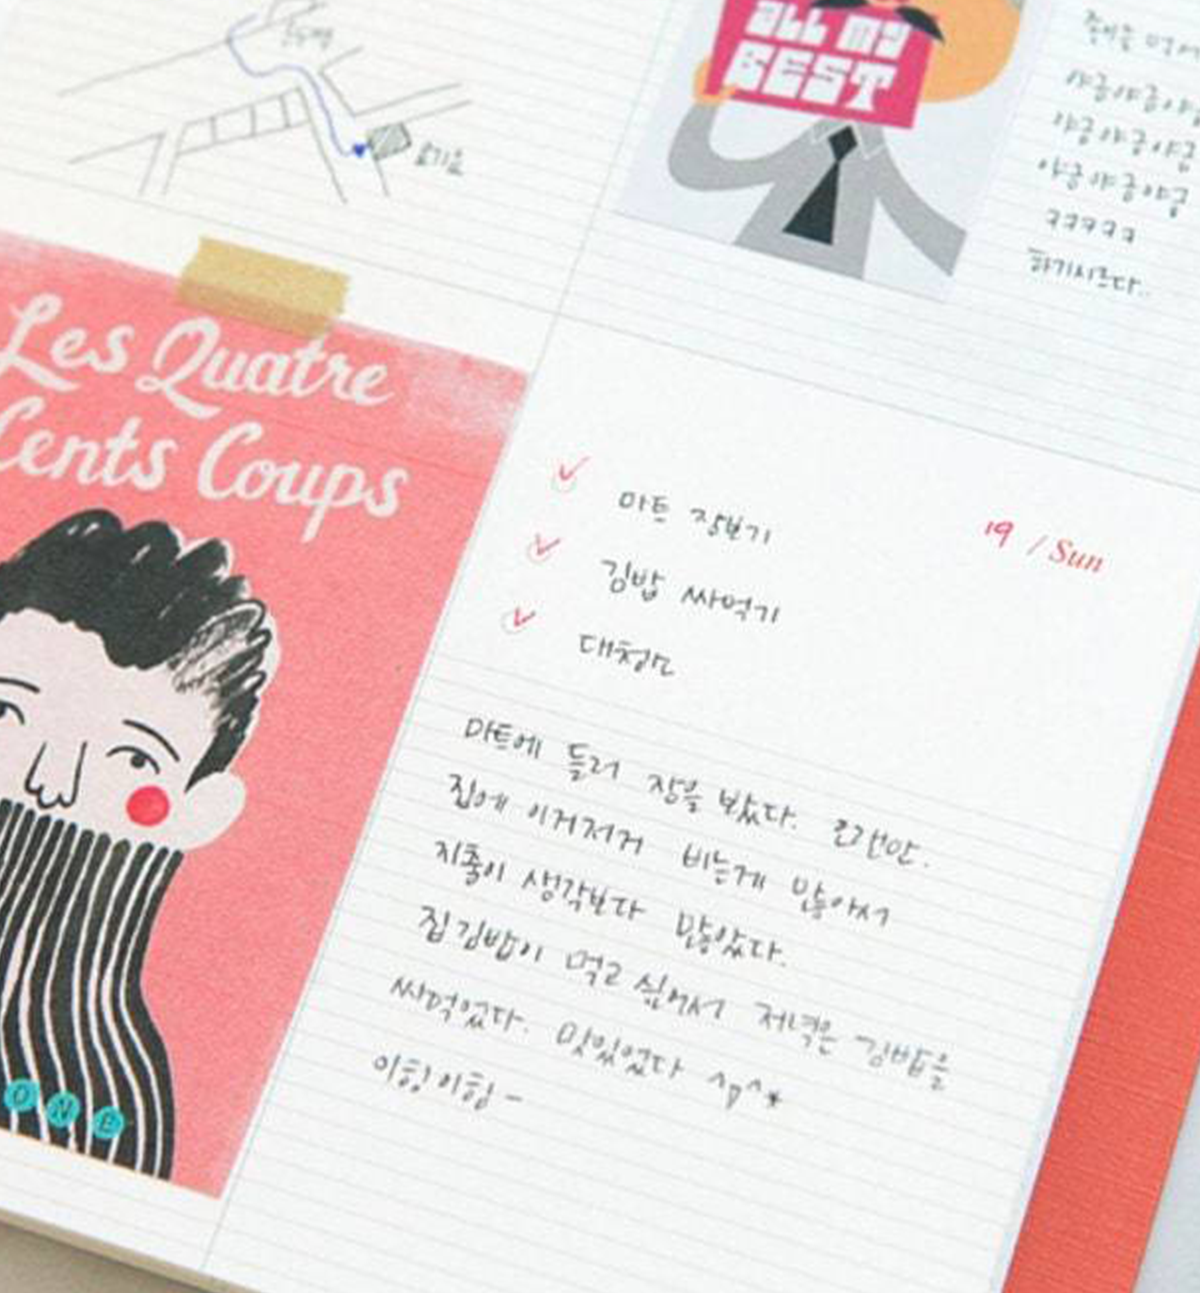 ALL MY
BEST
야금야금야금
야금야금야금
야금야금야금
ㅋㅋㅋㅋㅋ
Les Quatre
Cents Coups
19 / Sun
마트 장보기
김밥 싸먹기
대청소
마트에 들러 장을 봤다. 오랜만.
집에 이거저거 비는게 많아서
지출이 생각보다 많았다.
집김밥이 먹고 싶어서 저녁은 김밥을
싸먹었다. 맛있었다 ^ㅁ^*
이힝이힝-
O N E